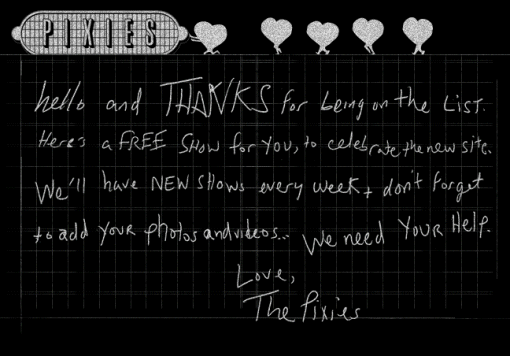 PIXIES
hello and THANKS for being on the LIST.
Here's a FREE SHOW for YOU, to celebrate the new site.
We'll have NEW SHOWS every week + don't forget
to add YOUR photos and videos... We need YOUR Help.
Love,
The Pixies